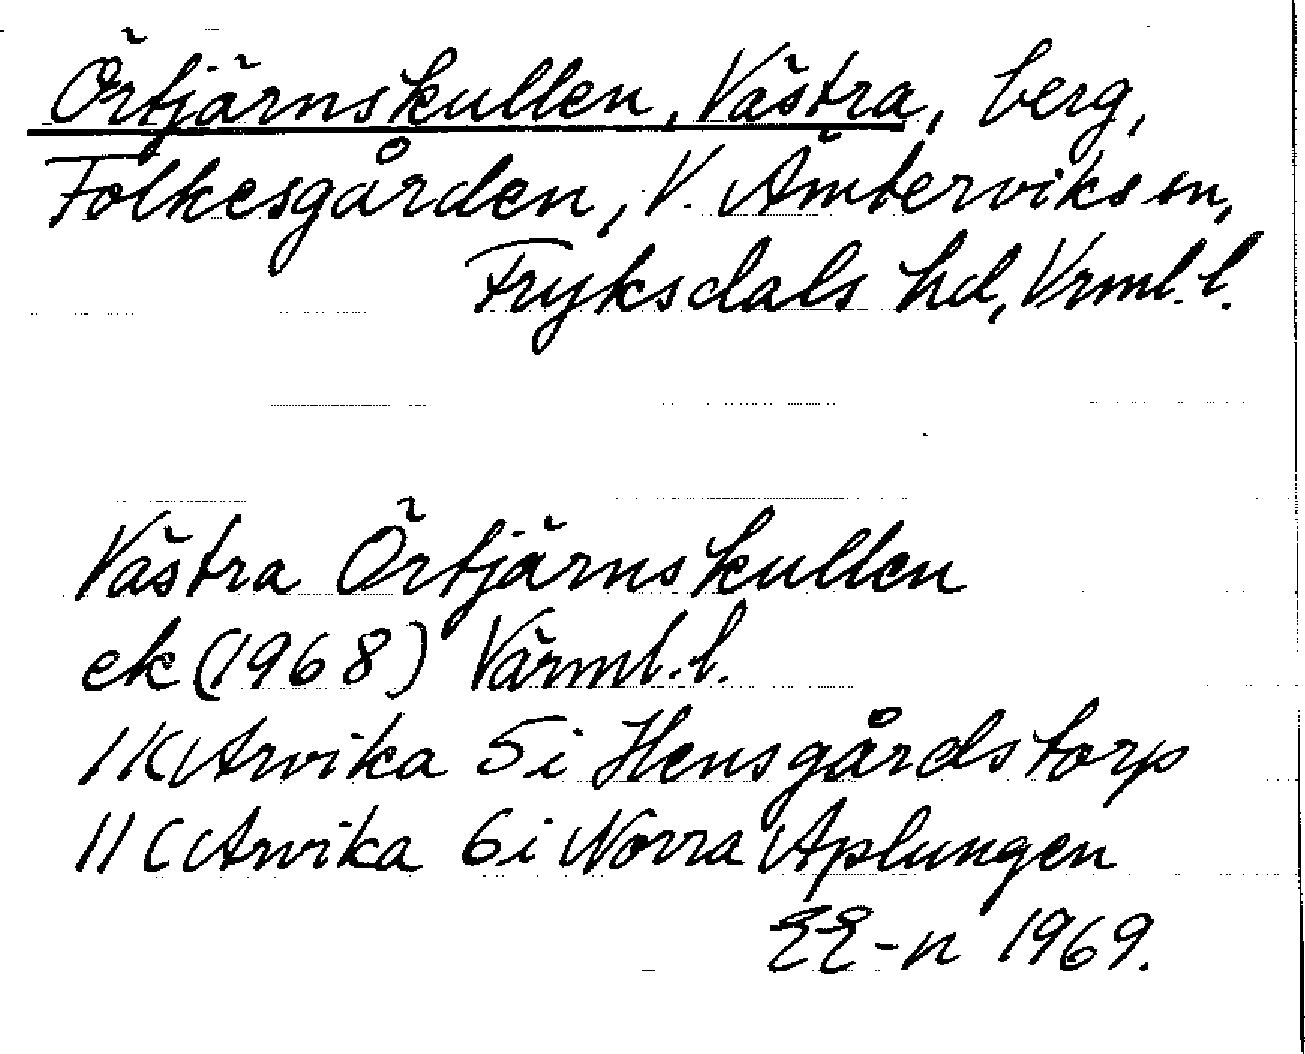 Örtjärnskullen, Västra, berg,
Folkesgården, V. Ämterviks sn,
Fryksdals hd, Vrml. l.
Västra Örtjärnskullen
ek (1968) Värml. l.
1K Arvika 5i Hensgårdstorp
11C Arvika 6i Norra Aplungen
EE-n 1969.